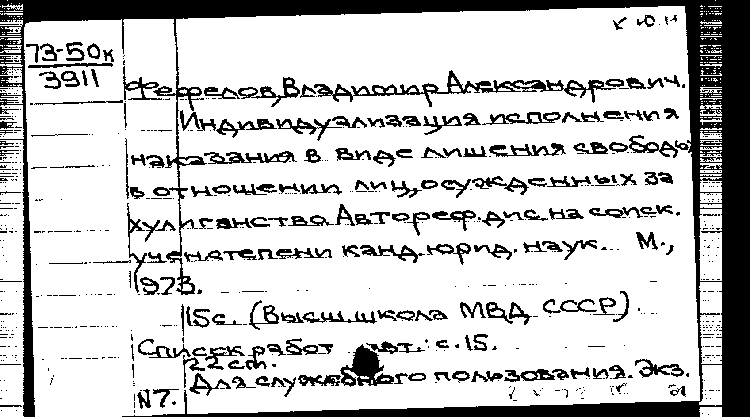 К Ю.Н
73-50к
3911
Фефелов, Владимир Александрович.
Индивидуализация исполнения
наказания в виде лишения свободы
в отношении лиц, осужденных за
хулиганство. Автореф. дис. на соиск.
учен. степени канд. юрид. наук. М.,
1973.
15 с. (Высш. школа МВД СССР).
Список работ авт.: с. 15.
22 cm.
Для служебного пользования. Экз.
N7.